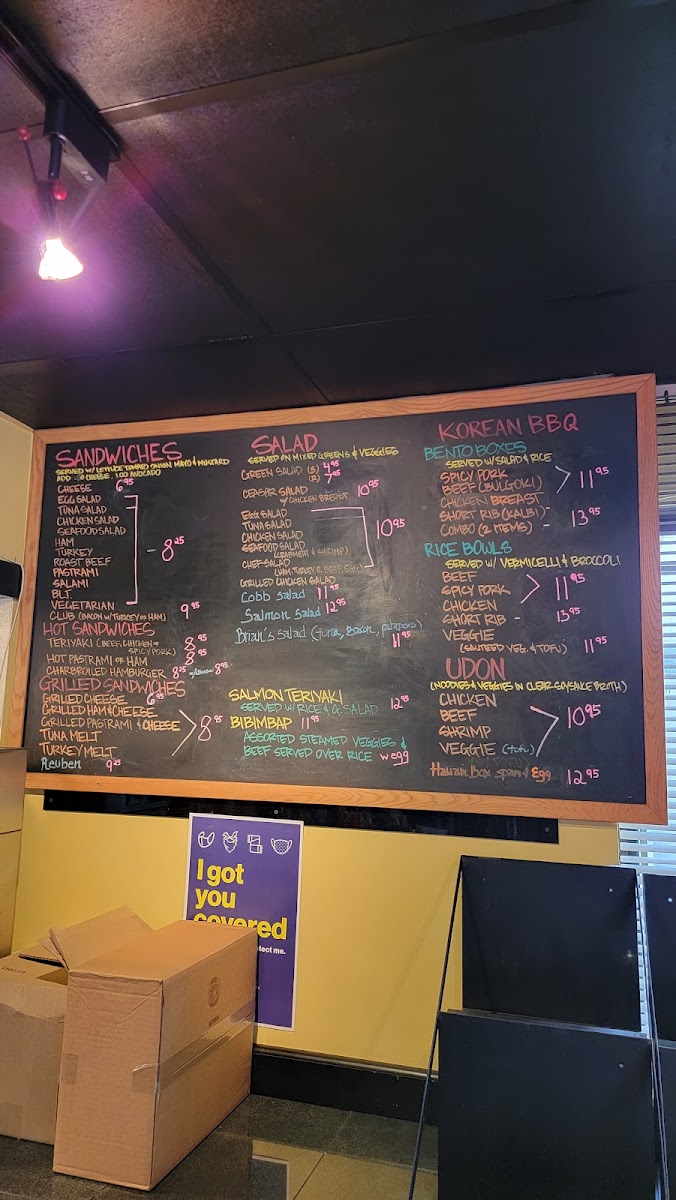 SANDWICHES
SERVED W/ LETTUCE TOMATO ONION MAYO & MUSTARD
ADD CHEESE 1.00 AVOCADO
CHEESE 6.95
EGG SALAD
TUNA SALAD
CHICKEN SALAD
SEAFOOD SALAD
HAM
TURKEY
ROAST BEEF
PASTRAMI
SALAMI
BLT
VEGETARIAN
- 8.25
CLUB (BACON W/ TURKEY OR HAM) 9.95
HOT SANDWICHES
TERIYAKI (BEEF, CHICKEN OR SPICY PORK) 8.95
HOT PASTRAMI OR HAM 8.95
CHARBROILED HAMBURGER 8.25 8.95
GRILLED SANDWICHES
GRILLED CHEESE 6.95
GRILLED HAM & CHEESE
GRILLED PASTRAMI & CHEESE
TUNA MELT
TURKEY MELT
8.95
Reuben 9.25
SALAD
SERVED ON MIXED GREENS & VEGGIES
GREEN SALAD (S) 4.95
(R) 7.95
CEASAR SALAD
W/ CHICKEN BREAST 10.95
EGG SALAD
TUNA SALAD
CHICKEN SALAD
SEAFOOD SALAD
(CRABMEAT & SHRIMP)
CHEF SALAD
(HAM, TURKEY, R. BEEF, EGG)
GRILLED CHICKEN SALAD
10.95
Cobb Salad 11.95
Salmon Salad 12.95
Brian's salad (tuna, bacon, ) 11.95
SALMON TERIYAKI
SERVED W/ RICE & G. SALAD 12.95
BIBIMBAP 11.95
ASSORTED STEAMED VEGGIES &
BEEF SERVED OVER RICE w egg
KOREAN BBQ
BENTO BOXES
SERVED W/ SALAD & RICE
SPICY PORK
BEEF (BULGOKI)
CHICKEN BREAST
11.95
SHORT RIB (KALBI) -
COMBO (2 ITEMS) - 13.95
RICE BOWLS
SERVED W/ VERMICELLI & BROCCOLI
BEEF
SPICY PORK
CHICKEN
11.95
SHORT RIB - 13.95
VEGGIE
(SAUTEED VEG. & TOFU) 11.95
UDON
(NOODLES & VEGGIES IN CLEAR SOYSAUCE BROTH)
CHICKEN
BEEF
SHRIMP
VEGGIE (TOFU)
10.95
Hawaiian Box spam & Egg 12.95
I got
you
covered